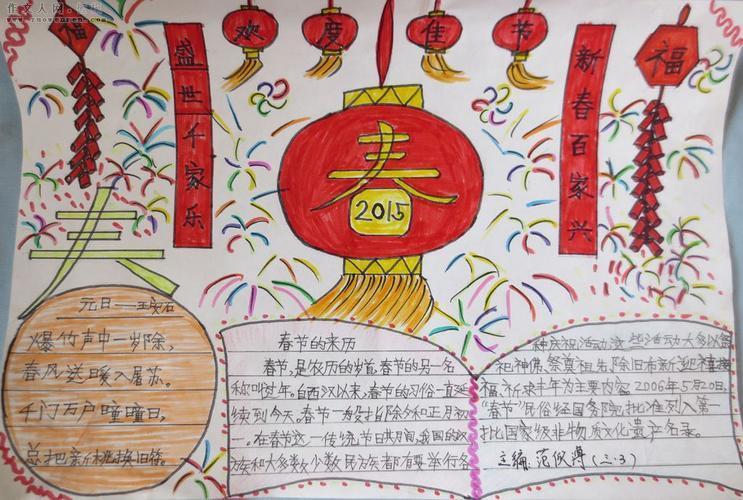 作文人网
www.zuowenren.com
欢度佳节
福
盛世千家乐
新春百家兴
福
春
2015
春
元日——王安石
爆竹声中一岁除,
春风送暖入屠苏。
千门万户曈曈日,
总把新桃换旧符。
春节的来历
春节,是农历的岁首,春节的另一名
称叫过年。自西汉以来,春节的习俗一直延
续到今天。春节一般指除夕和正月初
一。在春节这一传统节日其间,我国的汉
族和大多数少数民族都有要举行各
种庆祝活动,这些活动大多以祭
祀神佛、祭奠祖先、除旧布新、迎禧接
福、祈求丰年为主要内容。2006年5月20日,
“春节”民俗经国务院批准列入第一
批国家级非物质文化遗产名录。
主编:范
(三.3)